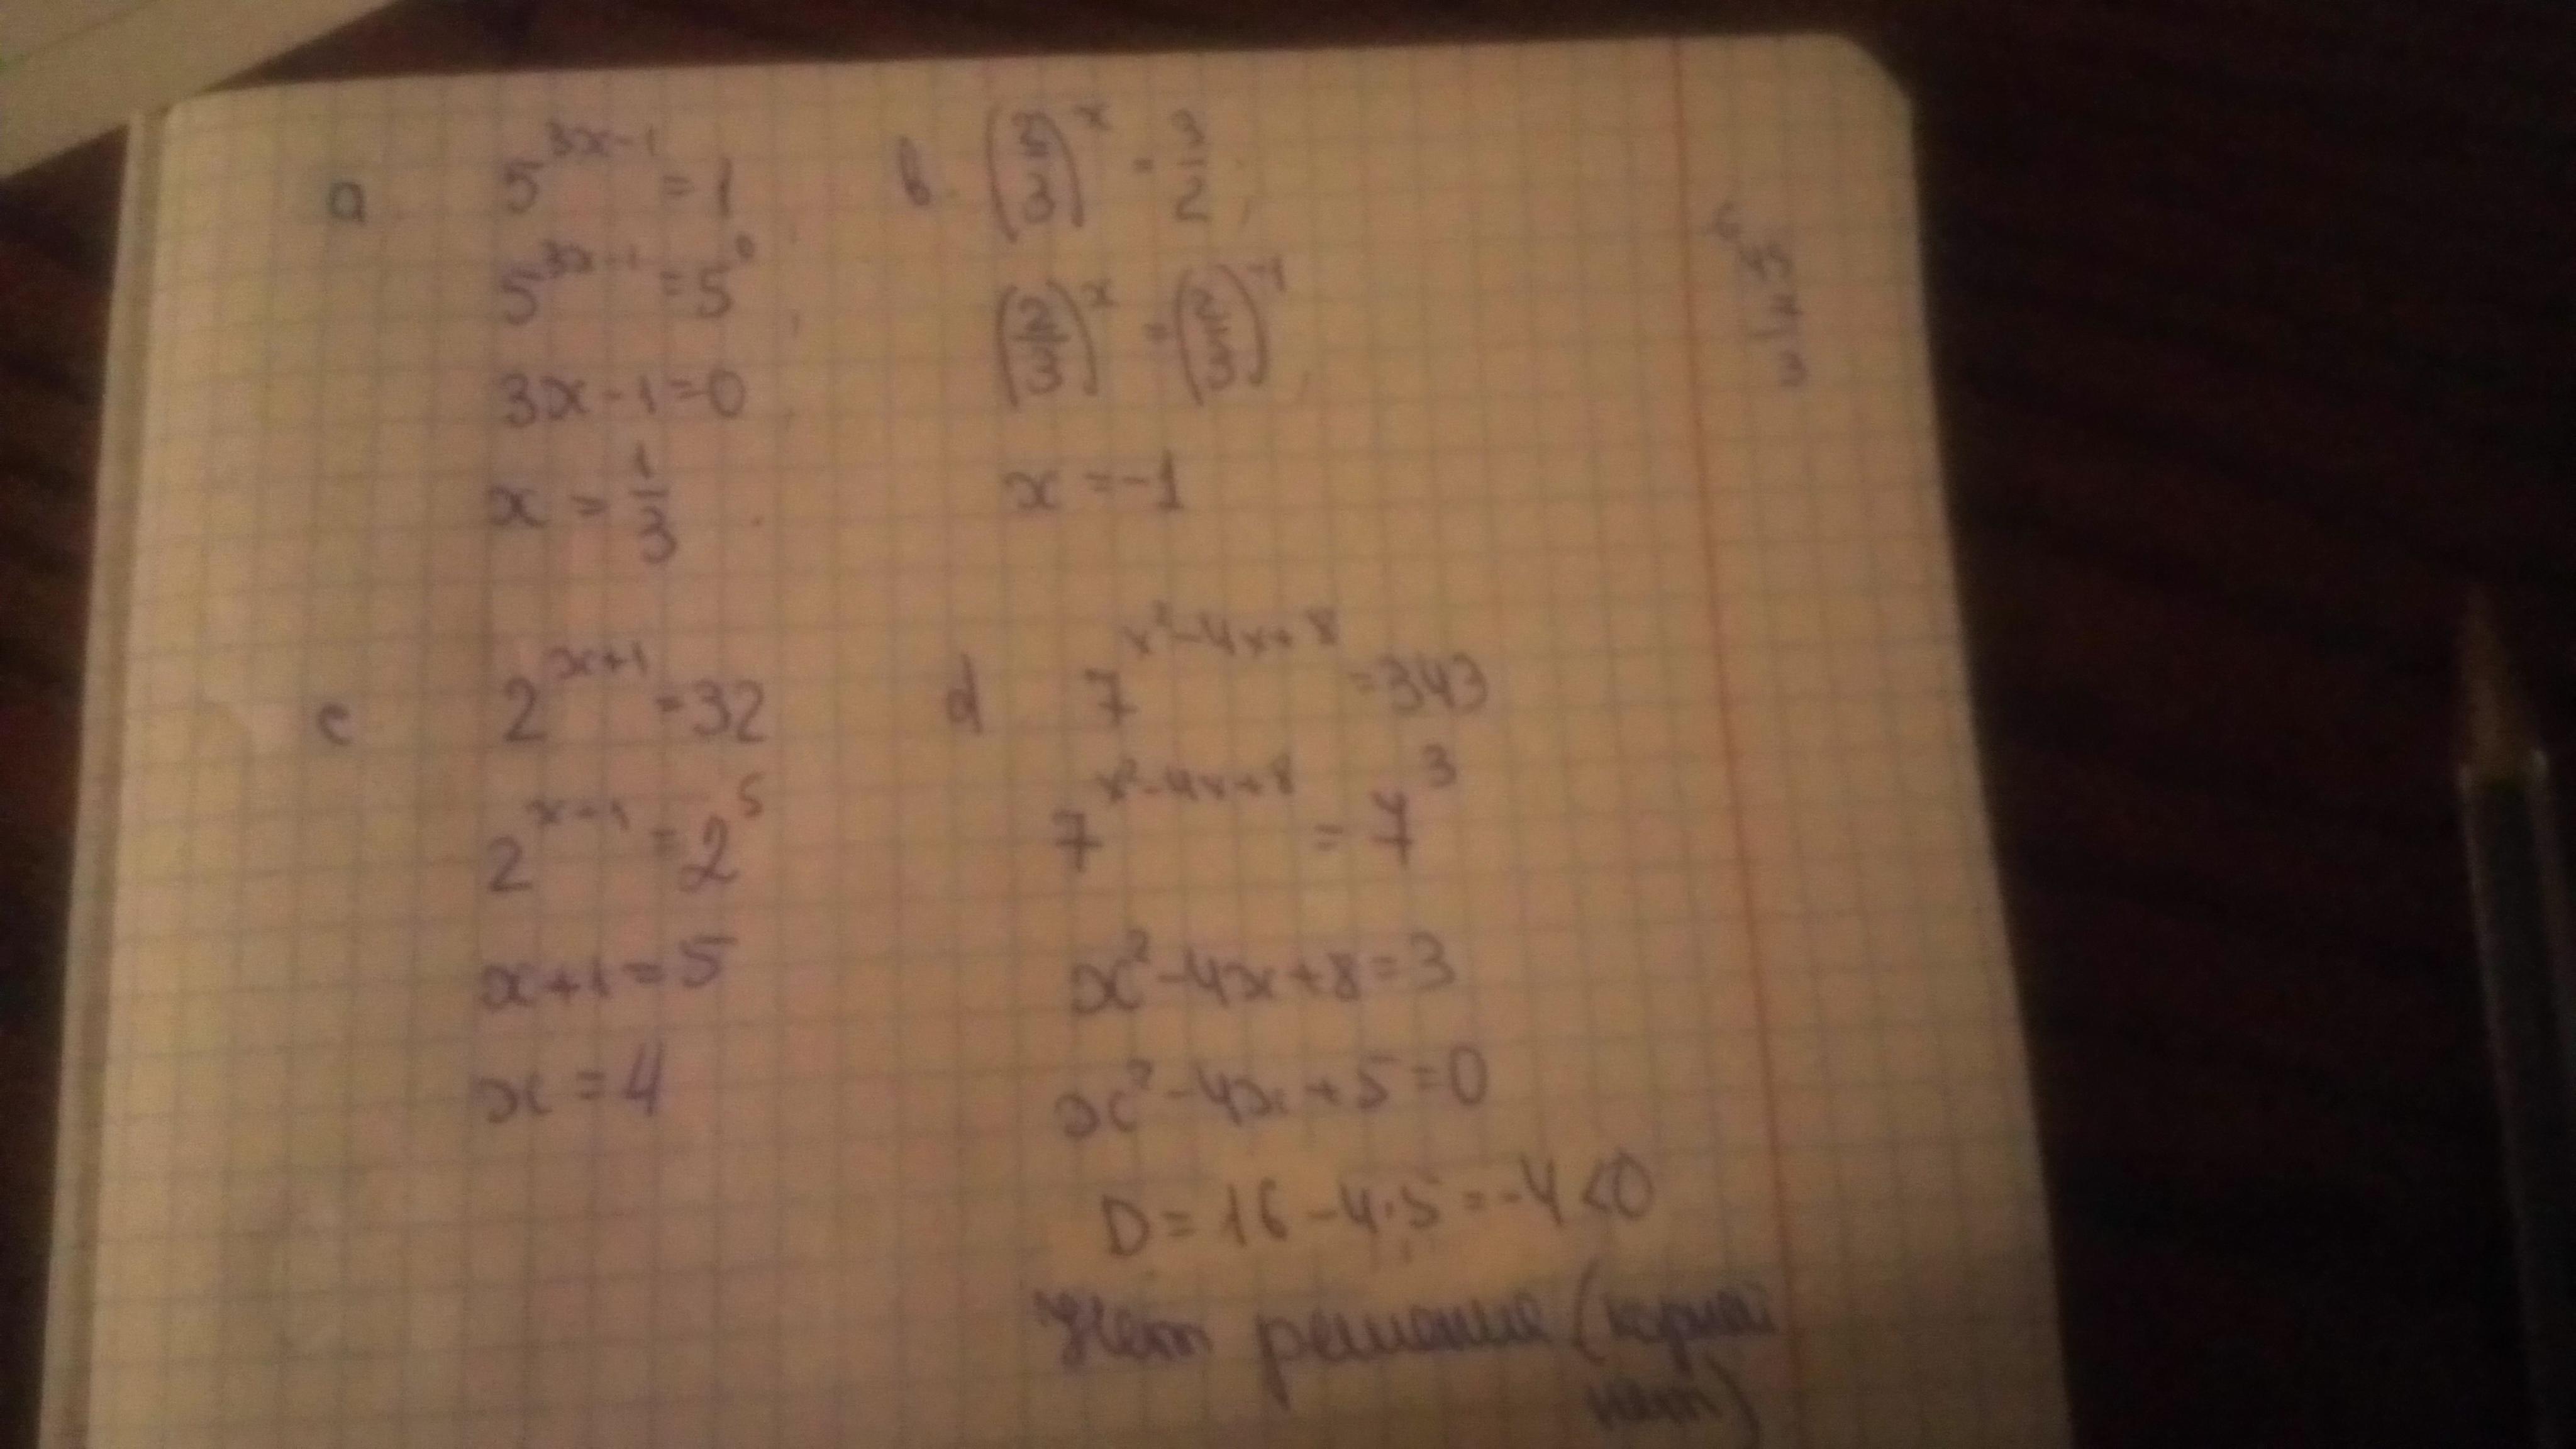 a 5^{3x-1} = 1
5^{3x-1} = 5^0
3x-1=0
x = 1/3
b. (2/3)^x = 3/2;
(2/3)^x = (2/3)^{-1}
x = -1
c 2^{x+1} = 32
2^{x+1} = 2^5
x+1=5
x = 4
d 7^{x²-4x+8} = 343
7^{x²-4x+8} = 7^3
x²-4x+8=3
x²-4x+5=0
D = 16-4·5 = -4<0
Нет решение (корней
нет)